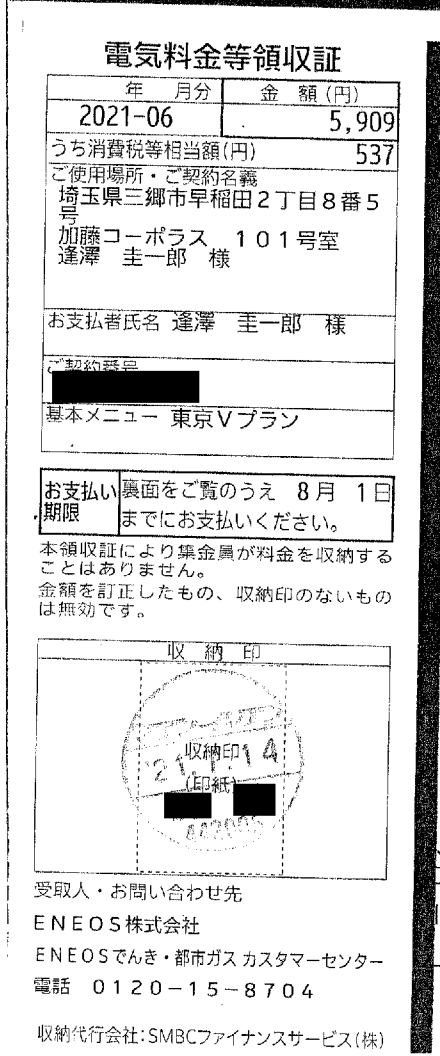 電気料金等領収証
年 月分 金 額(円)
2021-06 5,909
うち消費税等相当額(円) 537
ご使用場所・ご契約名義
埼玉県三郷市早稲田2丁目8番5
号
加藤コーポラス 101号室
逢澤 圭一郎 様
お支払者氏名 逢澤 圭一郎 様
ご契約番号
基本メニュー 東京Vプラン
お支払い期限 裏面をご覧のうえ 8月 1日
までにお支払いください。
本領収証により集金員が料金を収納する
ことはありません。
金額を訂正したもの、収納印のないもの
は無効です。
収 納 印
収納印
(印紙)
受取人・お問い合わせ先
ENEOS株式会社
ENEOSでんき・都市ガス カスタマーセンター
電話 0120-15-8704
収納代行会社:SMBCファイナンスサービス(株)